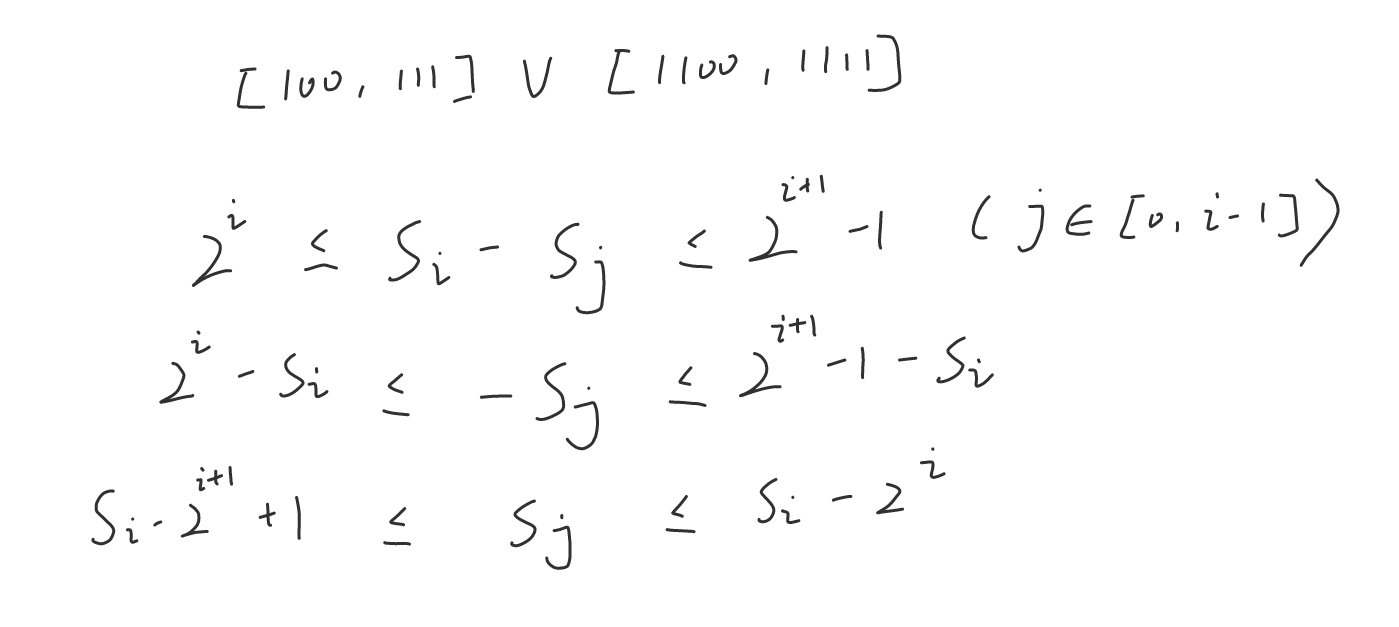 [100, 111] ∨ [1100, 1111]
2^i ≤ S_i - S_j ≤ 2^{i+1} - 1 (j ∈ [0, i-1])
2^i - S_i ≤ -S_j ≤ 2^{i+1} - 1 - S_i
S_i - 2^{i+1} + 1 ≤ S_j ≤ S_i - 2^i